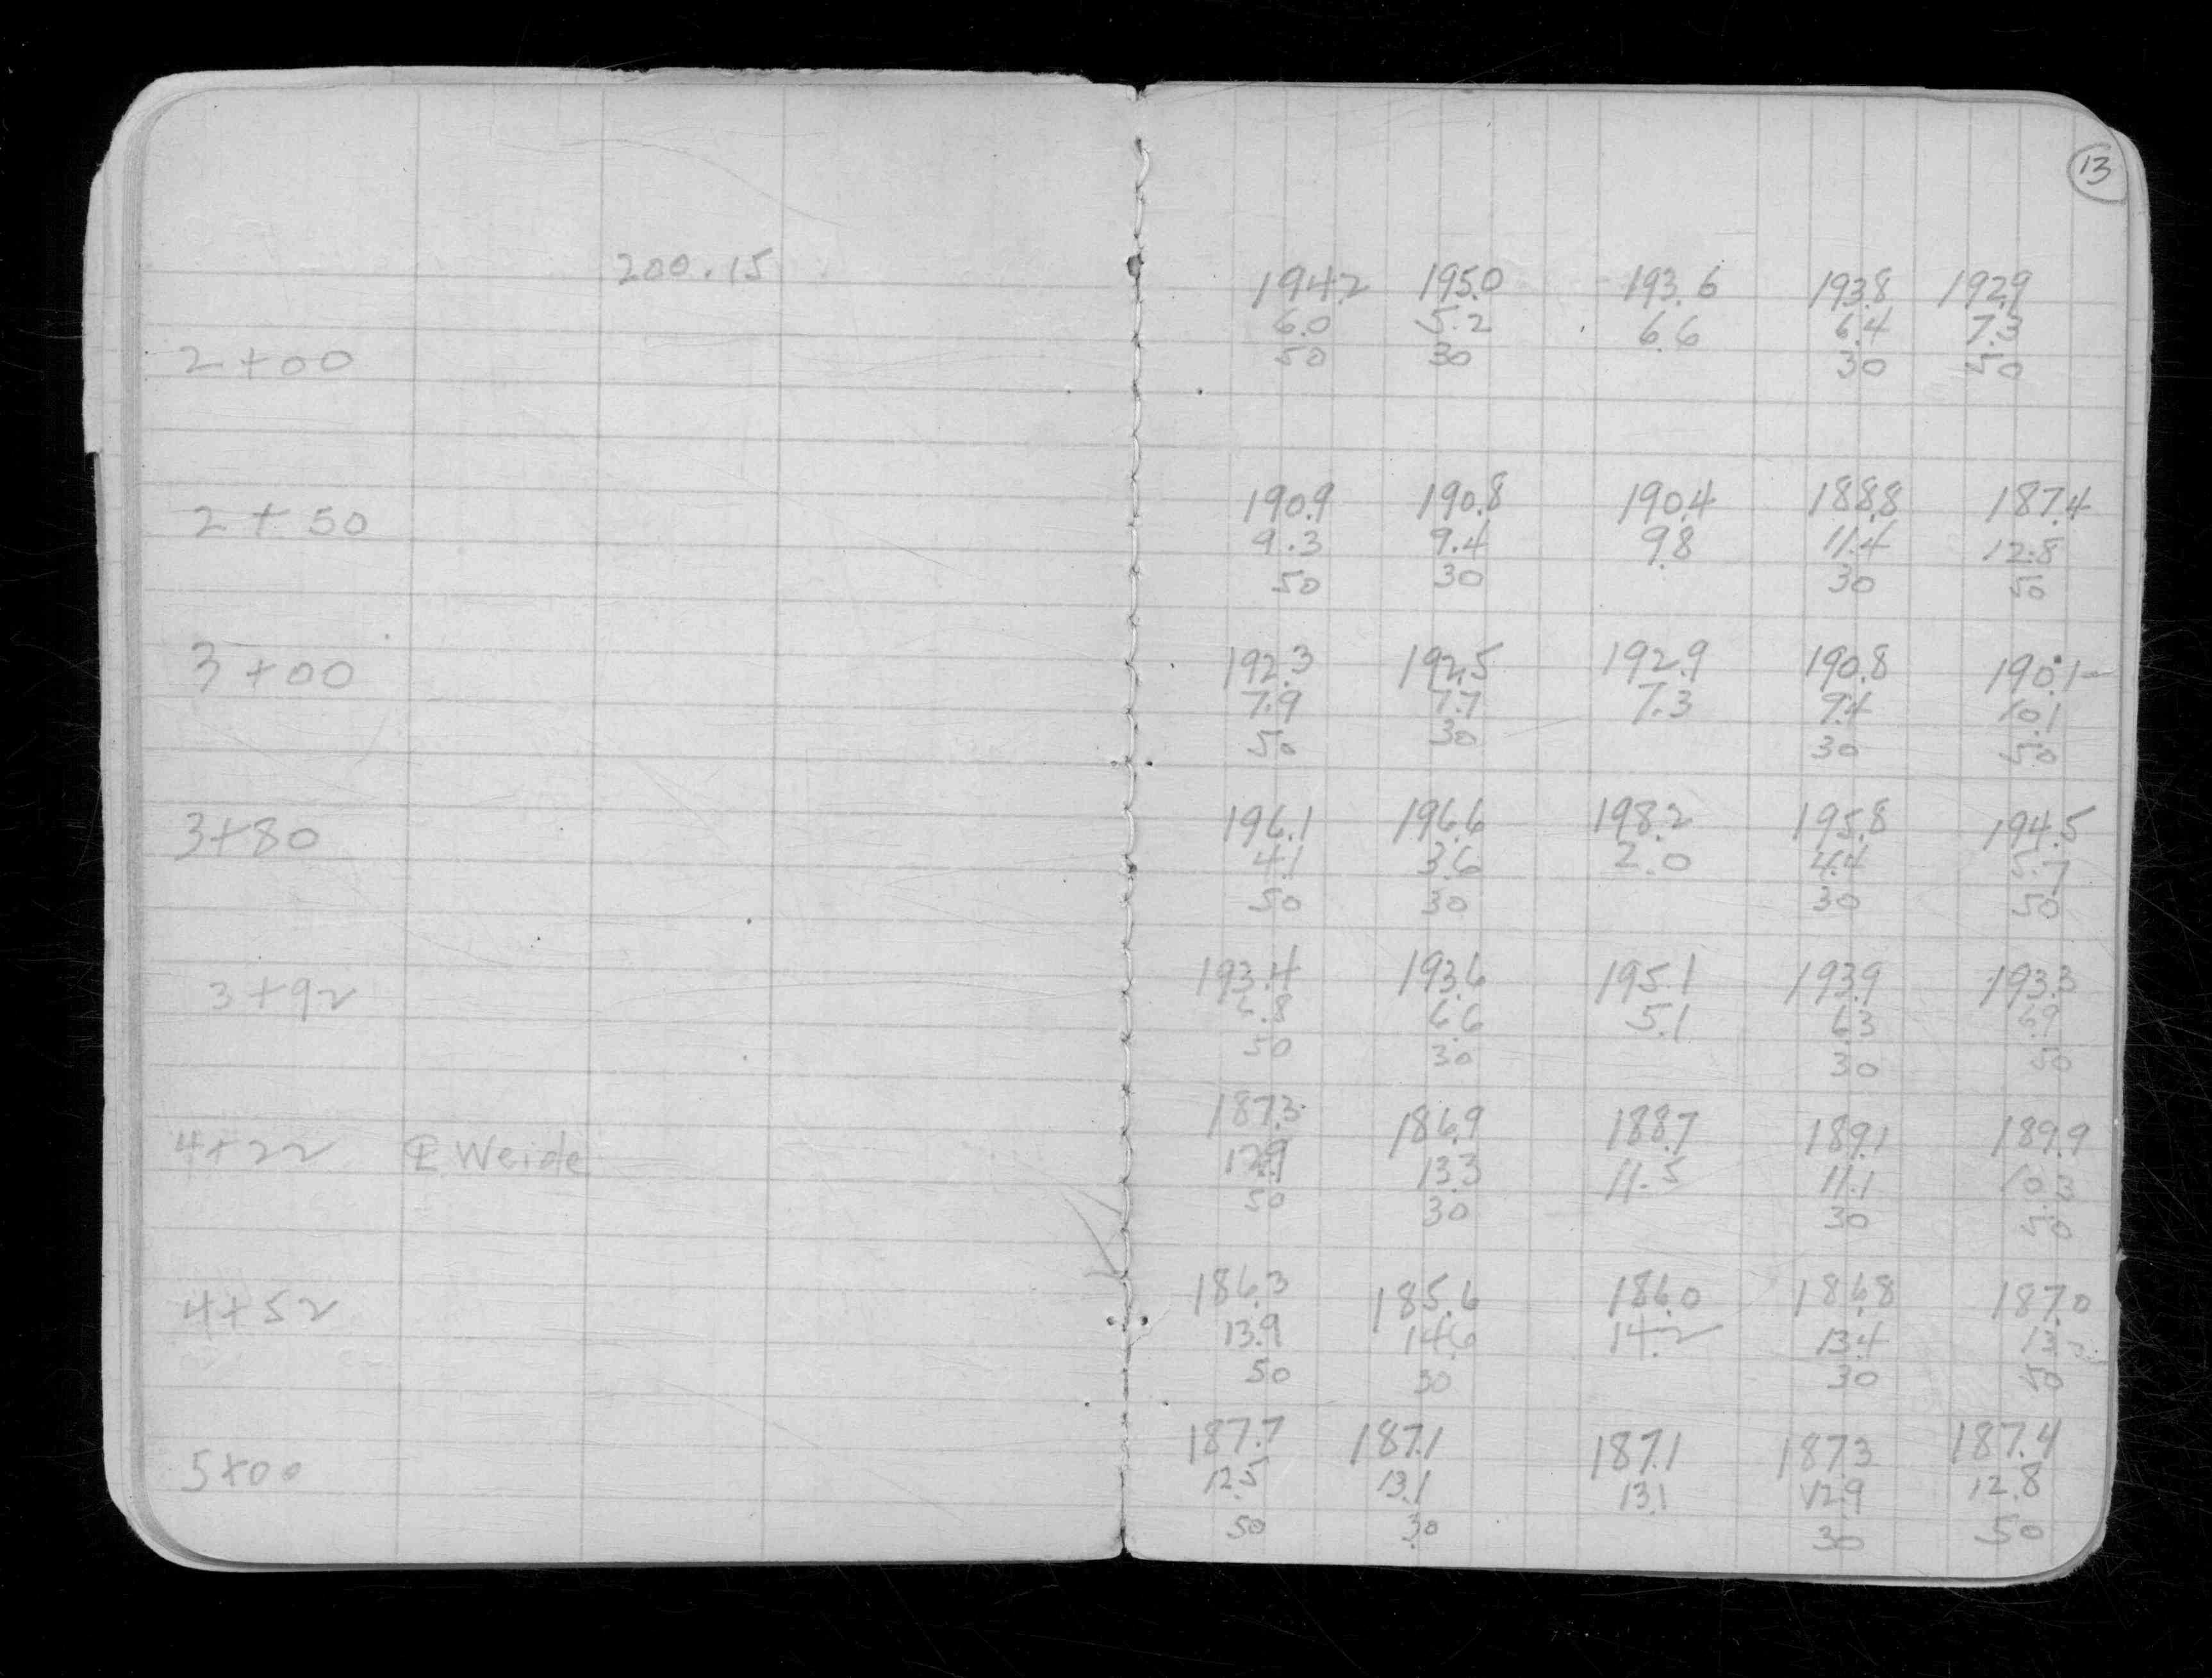 13
200.15
194.2 195.0 193.6 193.8 192.9
6.0 5.2 6.6 6.4 7.3
2+00 50 30 30 50
190.9 190.8 190.4 188.8 187.4
2+50 9.3 9.4 9.8 11.4 12.8
50 30 30 50
3+00 192.3 192.5 192.9 190.8 190.1
7.9 7.7 7.3 9.4 10.1
50 30 30 50
3+80 196.1 196.6 198.2 195.8 194.5
4.1 3.6 2.0 4.4 5.7
50 30 30 50
3+92 193.4 193.6 195.1 193.9 193.3
6.8 6.6 5.1 6.3 6.9
50 30 30 50
187.3 186.9 188.7 189.1 189.9
4+22 ℄ Weide 12.9 13.3 11.5 11.1 10.3
50 30 30 50
4+52 186.3 185.6 186.0 186.8 187.0
13.9 14.6 14.2 13.4 13.2
50 30 30 50
187.7 187.1 187.1 187.3 187.4
5+00 12.5 13.1 13.1 12.9 12.8
50 30 30 50